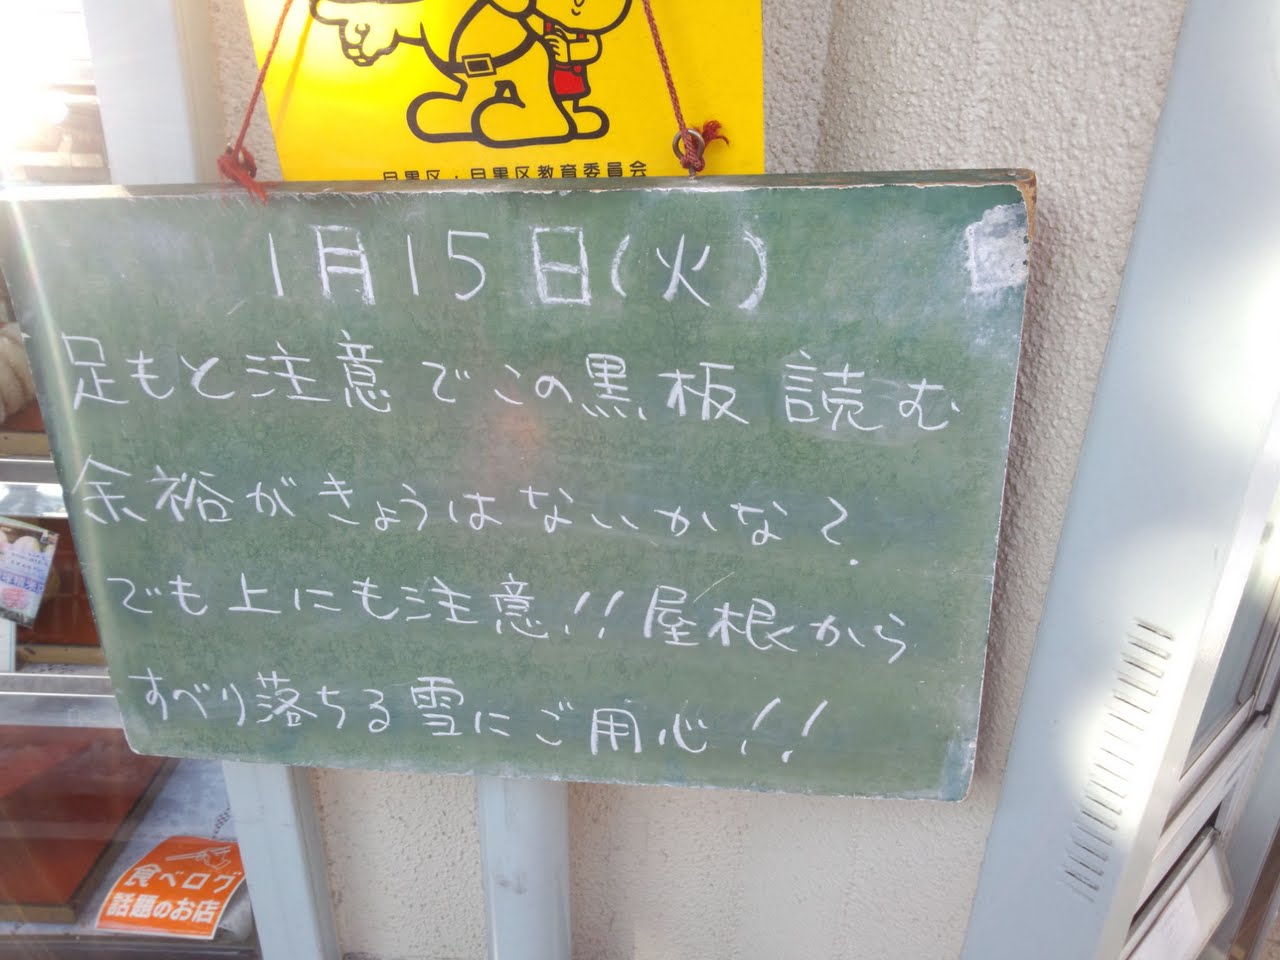 目黒区・目黒区教育委員会
1月15日(火)
足もと注意でこの黒板読む
余裕がきょうはないかな?
でも上にも注意!!屋根から
すべり落ちる雪にご用心!!
食べログ
話題のお店